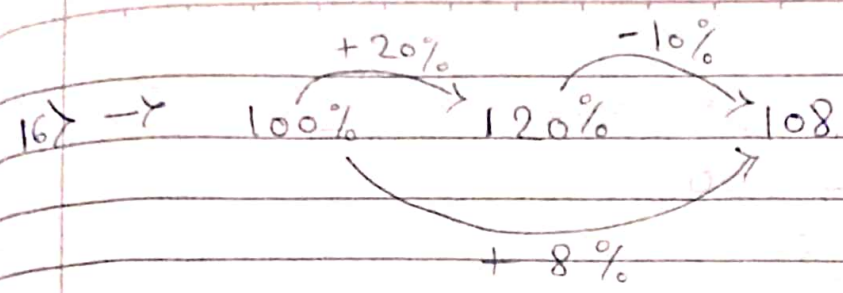 +20% -10%
16> → 100% 120% 108
+ 8%